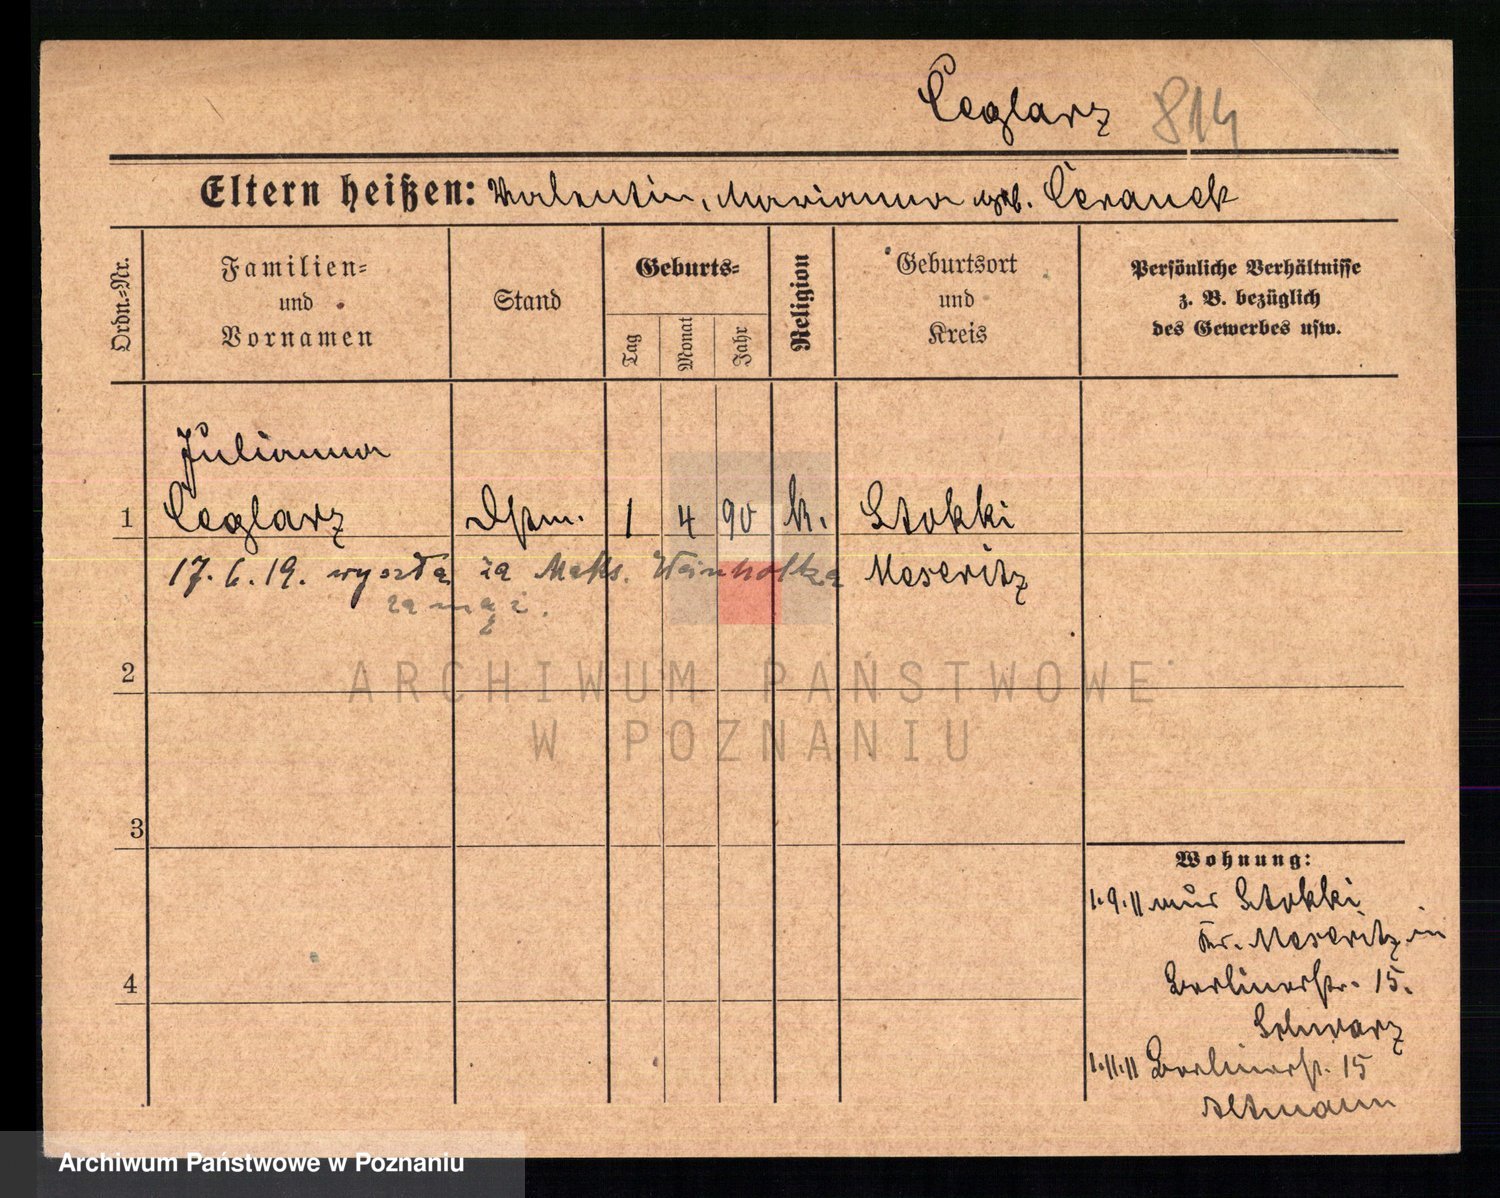 Ceglarz 814
Eltern heißen: Valentin, Marianna geb. Ceranek
Ordn.=Nr.
Familien=
und
Vornamen
Stand
Geburts=
Tag
Monat
Jahr
Religion
Geburtsort
und
Kreis
Persönliche Verhältnisse
z. B. bezüglich
des Gewerbes usw.
Julianna
1 Ceglarz Dstm. 1 4 90 k. Stokki
17. 6. 19. wyszła za Maks. Weinholtza Meseritz
za mąż.
2
ARCHIWUM PAŃSTWOWE
W POZNANIU
3
Wohnung:
1.9.11 aus Stokki
Kr. Meseritz in
4 Berlinerstr. 15.
Schwarz
1.11.11 Berlinerstr. 15
Altmann
Archiwum Państwowe w Poznaniu